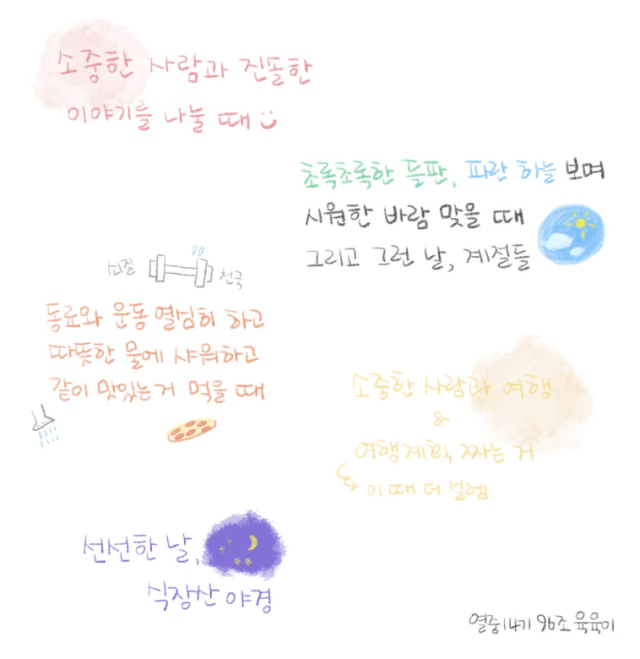 소중한 사람과 진솔한
이야기를 나눌 때
초록초록한 들판, 파란 하늘 보며
시원한 바람 맞을 때
그리고 그런 날, 계절들
천국
동료와 운동 열심히 하고
따뜻한 물에 샤워하고
같이 맛있는거 먹을 때
소중한 사람과 여행
&
여행계획 짜는 거
이 때 더 설렘
선선한 날,
식장산 야경
열중14기 96조 육육이